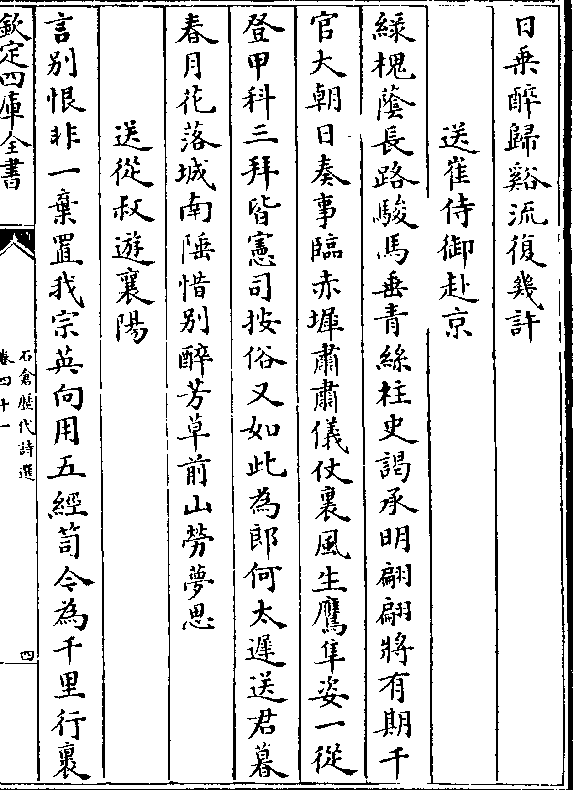 日乗醉歸谿流復幾許
送崔侍御赴京
緑槐蔭長路駿馬垂青絲柱史謁承明翩翩將有期千
官大朝日奏事臨赤墀肅肅儀仗裏風生鷹隼姿一從
登甲科三拜皆憲司按俗又如此為郎何太遲送君暮
春月花落城南陲惜別醉芳草前山勞夢思
送從叔遊襄陽
言別恨非一棄置我宗英向用五經笥今為千里行裏
欽定四庫全書
石倉歴代詩選
卷四十一
四